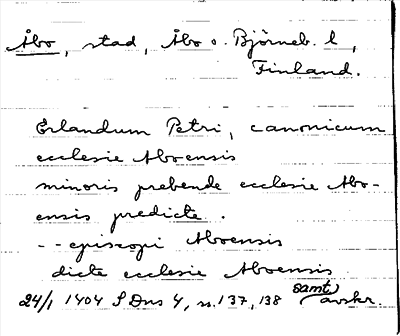 Åbo, stad, Åbo o. Björneb. l,
Finland.
Erlandum Petri, canonicum
ecclesie Aboensis
minoris prebende ecclesie Abo-
ensis predicte.
- - episcopi Aboensis
dicte ecclesie Aboensis
24/1 1404 SDns 4, n. 137, 138 samt. avskr.